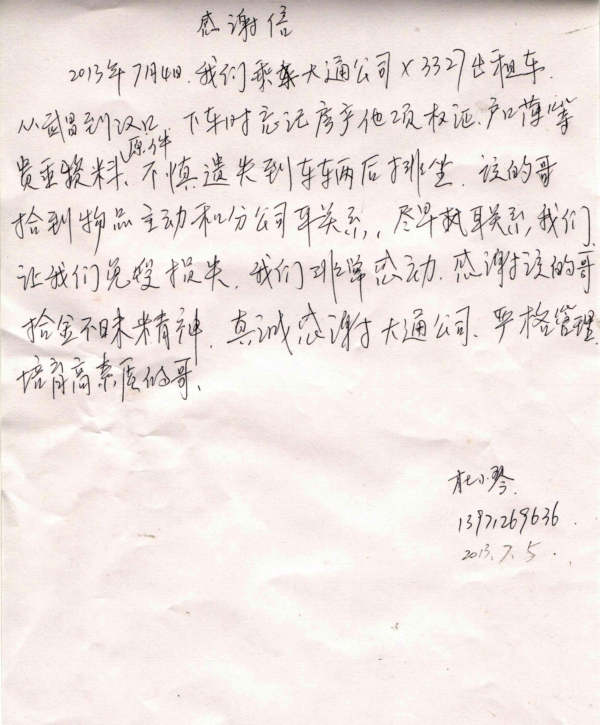 感谢信
2013年7月4日.我们乘大通公司X3327出租车.
从武昌到汉口.下车时忘记房产他项权证.户口薄等
贵重资料、原件不慎遗失到车车两后排坐.该的哥
拾到物品主动和分公司联关系,尽早联关系,我们
让我们免受损失.我们非常感动.感谢该的哥
拾金不昧精神.真诚感谢大通公司、严格管理
培育高素质的哥、
杜小琴
13971269636.
2013.7.5.